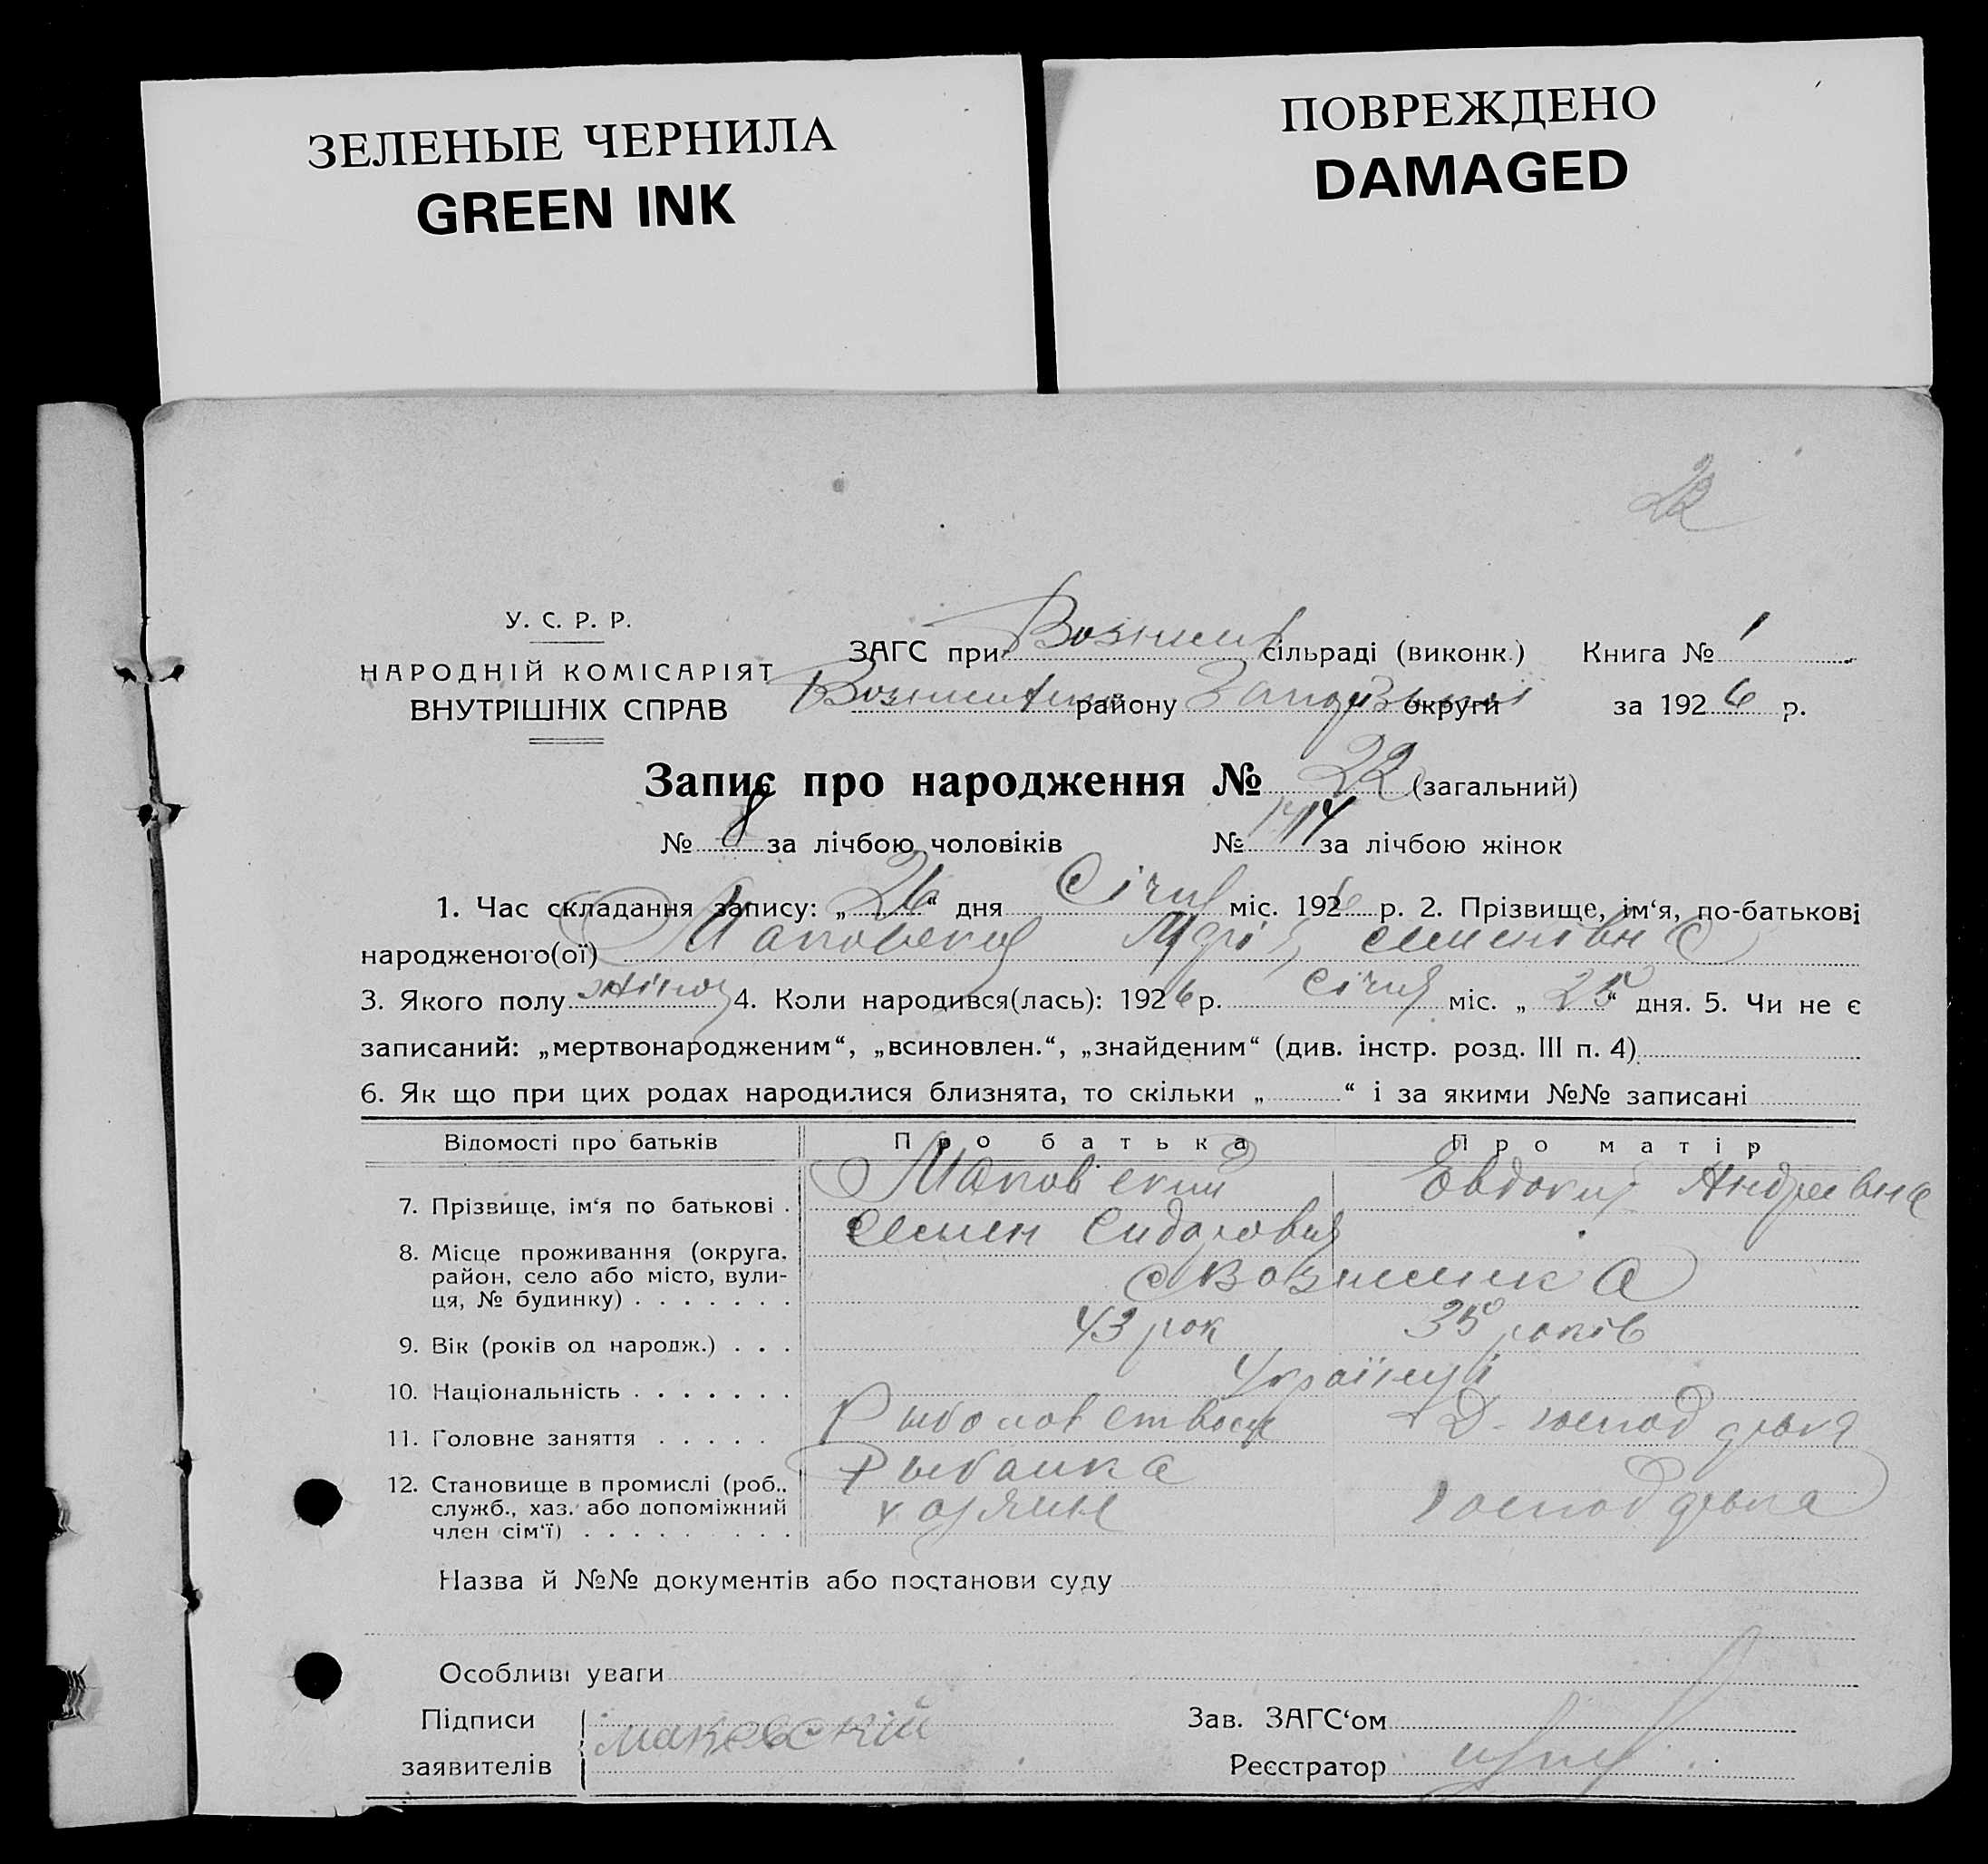 ЗЕЛЕНЫЕ ЧЕРНИЛА
GREEN INK
ПОВРЕЖДЕНО
DAMAGED
22
У. С. Р. Р.
НАРОДНІЙ КОМІСАРІЯТ
ВНУТРІШНІХ СПРАВ
ЗАГС при сільраді (виконк.) Книга № 1
району округи за 1926 р.
Запис про народження № 22 (загальний)
№ 8 за лічбою чоловіків № 14 за лічбою жінок
1. Час складання запису: „26“ дня Січня міс. 1926 р. 2. Прізвище, ім‘я, по-батькові
народженого(ої) Маковская Марія
3. Якого полу жіноч 4. Коли народився(лась): 1926 р. Січня міс. „25“ дня. 5. Чи не є
записаний: „мертвонародженим“, „всиновлен.“, „знайденим“ (див. інстр. розд. III п. 4)
6. Як що при цих родах народилися близнята, то скільки „ “ і за якими №№ записані
Відомості про батьків Про батька Про матір
7. Прізвище, ім‘я по батькові . Маковский Евдокия Андреевна
Семен Сидорович
8. Місце проживання (округа, район, село або місто, вулиця, № будинку) . . . . . . .
9. Вік (років од народж.) . . . 43 рок 35 років
10. Національність . . . . . . . Українці
11. Головне заняття . . . . .
12. Становище в промислі (роб., Рыбалка
служб., хаз. або допоміжний
член сім‘ї) . . . . . . . . .
Назва й №№ документів або постанови суду
Особливі уваги
Підписи заявителів маковский
Зав. ЗАГС‘ом
Реєстратор